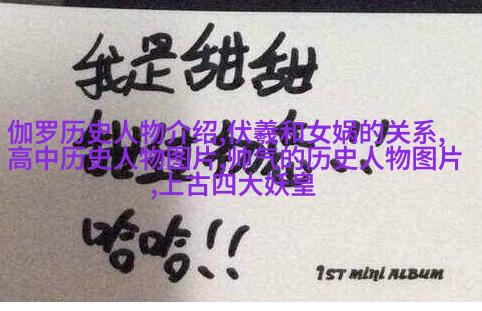 我是甜甜
伽罗历史人物介绍,伏羲和女娲的关系,
高中历史人物图片,帅气的历史人物图片
,上古四大妖望
哈哈!!
1ST MINI ALBUM